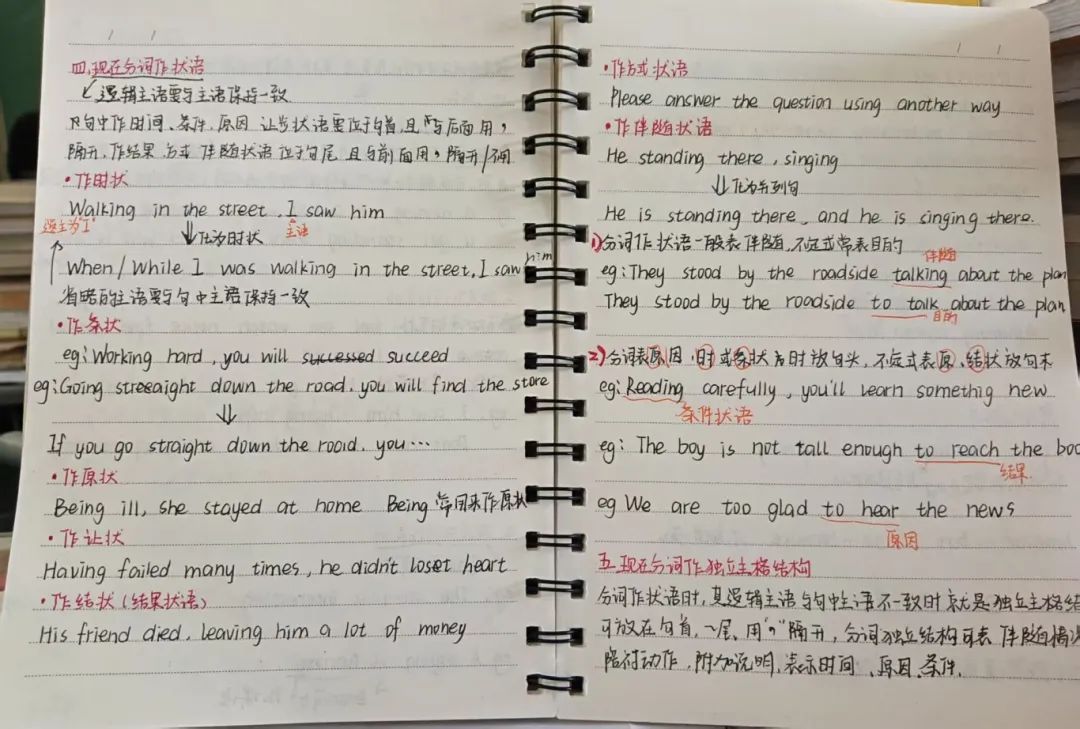 四.现在分词作状语
逻辑主语要与主语保持一致
内句中作时间、条件、原因 让步状语要位于句首,且与后面用,
隔开,作结果 方式 伴随状语位于句尾 且与前面用,隔开/不用
·作时状
Walking in the street, I saw him
逻主为"I"
化为时状
主语
When/While I was walking in the street, I saw him
省略的主语要与句中主语保持一致
·作条状
eg: Working hard, you will succeed
eg: Going streaight down the road, you will find the store
If you go straight down the road, you…
·作原状
Being ill, she stayed at home Being 常用来作原状
·作让状
Having failed many times, he didn't loset heart
·作结状(结果状语)
His friend died, leaving him a lot of money
·作方式状语
Please answer the question using another way
·作伴随状语
He standing there, singing
化为并列句
He is standing there, and he is singing there.
1)分词作状语一般表伴随,不定式常表目的
伴随
eg: They stood by the roadside talking about the plan
They stood by the roadside to talk about the plan
目的
2)分词表原因,时或条状语时放句头,不定式表原、结状放句末
eg: Reading carefully, you'll learn somethig new
条件状语
eg: The boy is not tall enough to reach the boo
结果
eg We are too glad to hear the news
原因
五.现在分词作独立主格结构
分词作状语时,其逻辑主语与句中主语不一致时就是独立主格结
可放在句首,~尾,用","隔开,分词独立结构可表 伴随描
陪衬动作,附加说明,表示时间、原因、条件.